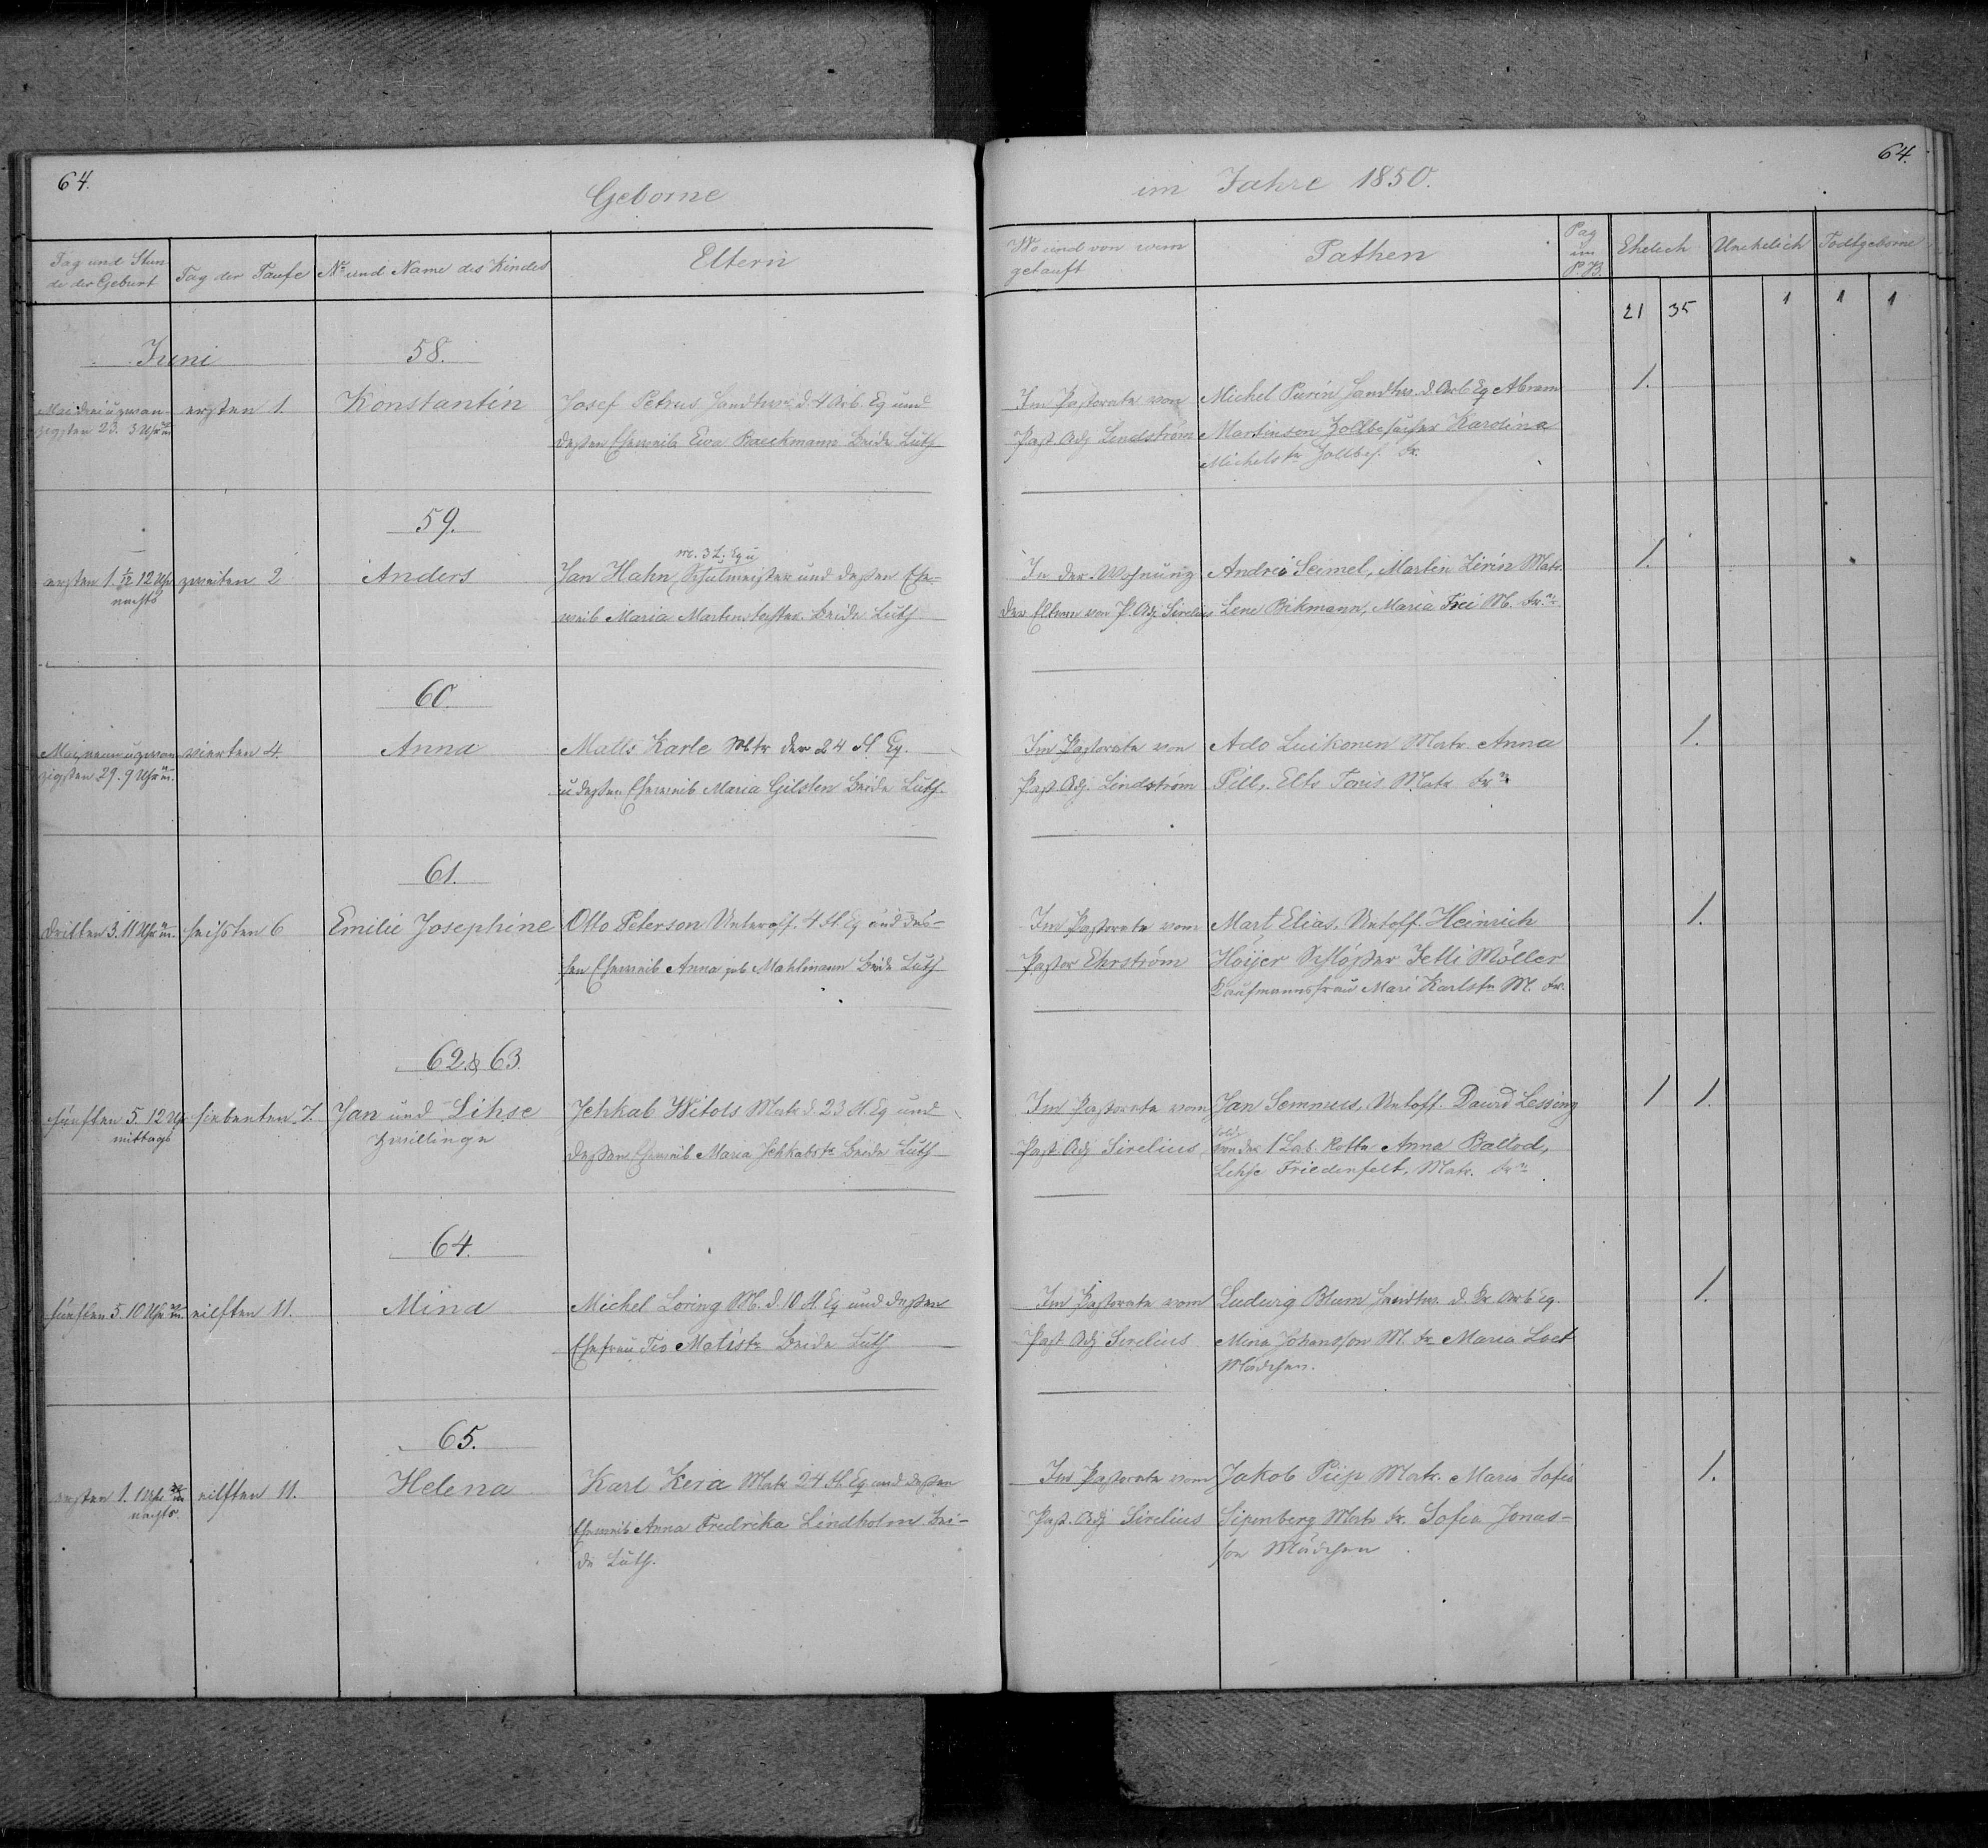 64.
Geborne
im Jahre 1850.
64.
Tag und Stun
de der Geburt
Tag der Taufe
No und Name des Kindes
Eltern
Wo und von wem
getauft
Pathen
Pag
im
P.B.
Ehelich
Unehelich
Todtgeborne
21 35 1 1 1
Juni
58.
Mai dreiuzwan
zigsten 23. 3 Uhr
ersten 1.
Konstantin
Josef Petrus Handw. d. 4 Arb. Eq und
dessen Eheweib Ewa Baeckmann beide Luth
Im Pastorate von
Past. Adj Lindström
Michel Purin Handw. d. Arb Eq Abram
Martinson Zollbesucher Karolina
Michelstr. Zollbes. fr.
1.
59.
ersten 1. 1/2 12 Uhr
nachts
zweiten 2
Anders
m. 3 L. Eq u
Jan Hahn, Schulmeister und dessen Ehe-
weib Maria Martenstochter. beide Luth
In der Wohnung
der Eltern von P. Adj. Sirelius
Andrei Seimel, Martin Zirin Matr.
Lene Bikmann, Maria Frei M. fr.
1.
60.
Mai neunuzwan
zigsten 29. 9 Uhr
vierten 4.
Anna
Matts Karle Mtr der 24 Fl. Eq.
u dessen Eheweib Maria Gilsten beide Luth.
Im Pastorate von
Past. Adj. Lindström
Ado Luikonen Matr. Anna
Pill, Elts Tonis Matr fr
1.
61.
dritten 3. 11 Uhr
sechsten 6
Emilie Josephine
Otto Peterson Unteroff. 4 Fl. Eq und des-
sen Eheweib Anna geb Mahlmann beide Luth
Im Pastorate vom
Pastor Ehrström
Mart Elias, Untoff. Heinrich
Höijer Schlosser Jetti Möller
Kaufmannsfrau Mari Karlstr. M. fr.
1.
62. & 63.
fünften 5. 12 Uhr
mittags
siebenten 7.
Jan und Lihse
Zwillinge
Jehkab Witols Matr d. 23 Fl. Eq und
dessen Eheweib Maria Jehkabstr beide Luth
Im Pastorate vom
Past. Adj Sirelius
Jan Semmus, Untoff. Dawid Lessing
Sold
von der 1 Lab. Rotte Anna Ballod,
Lehse Friedenfelt, Matr. fr
1 1.
64.
fünften 5. 10 Uhr
eilften 11.
Mina
Michel Loring M. d. 10 Fl. Eq und dessen
Ehefrau Tio Matistr. beide Luth
Im Pastorate vom
Past Adj Sirelius.
Ludwig Blum Handw. d. Arb Eq.
Mina Johansson M. fr Maria Loet
Mädchen.
1.
65.
ersten 1. 1 Uhr
nachts.
eilften 11.
Helena
Karl Kera Matr 24 Fl. Eq und dessen
Eheweib Anna Fredrika Lindholm bei-
de Luth.
Im Pastorate vom
Past. Adj Sirelius
Jakob Piip Matr. Maria Sofia
Sipenberg Matr fr. Sofia Jonas-
son Mädchen.
1.